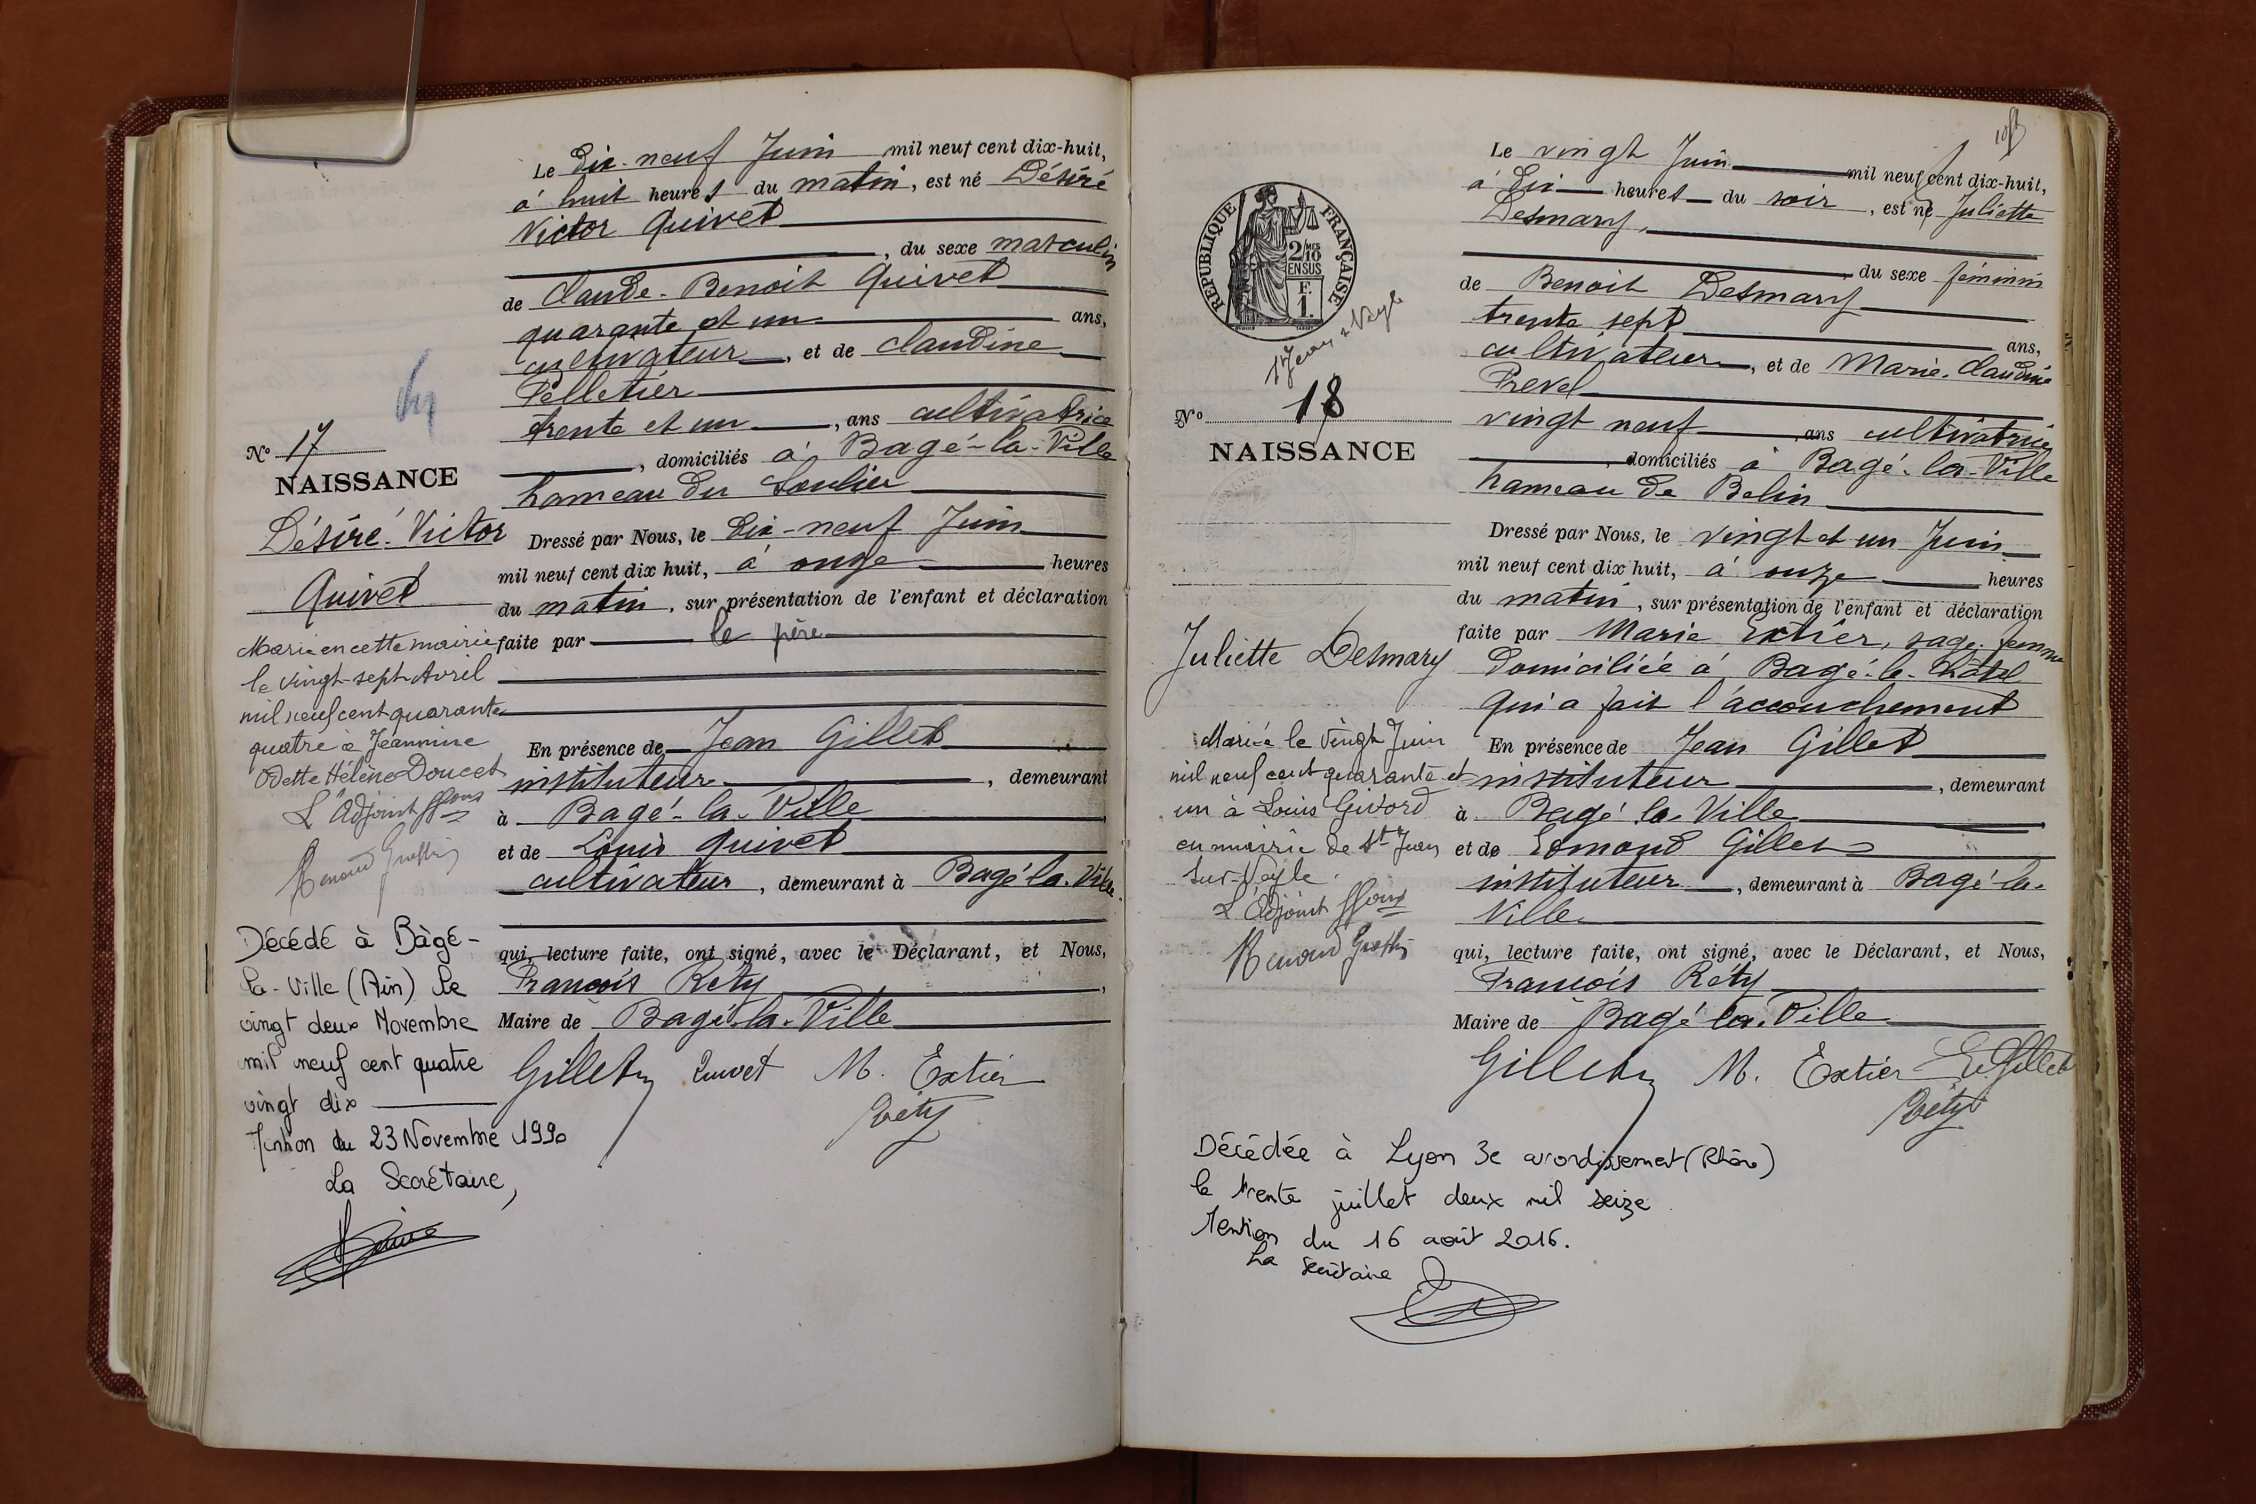 Le dix-neuf Juin mil neuf cent dix-huit,
à huit heures du matin, est né Désiré
Victor Quivet
, du sexe masculin
de Claude-Benoit Quivet
quarante et un ans,
cultivateur, et de Claudine
Pelletier
trente et un, ans cultivatrice
, domiciliés à Bagé-la-Ville
hameau du Soulier
Dressé par Nous, le dix-neuf Juin
mil neuf cent dix huit, à onze heures
du matin, sur présentation de l'enfant et déclaration
faite par le père
En présence de Jean Gillet
instituteur, demeurant
à Bagé-la-Ville
et de Louis Quivet
cultivateur, demeurant à Bagé-la-Ville
qui, lecture faite, ont signé, avec le Déclarant, et Nous,
François Réty,
Maire de Bagé-la-Ville
Gillet Quivet M. Extier
Réty
No 17
NAISSANCE
Désiré-Victor
Quivet
Marié en cette mairie
le vingt-sept Avril
mil neuf cent quarante
quatre à Jeannine
Odette Hélène Doucet
L'Adjoint
Décédé à Bâgé-
la-Ville (Ain) le
vingt deux Novembre
mil neuf cent quatre
vingt dix
Mention du 23 Novembre 1990
La Secrétaire,
RÉPUBLIQUE FRANÇAISE
2/10 MES
EN SUS
F.
1.
St Jean s Veyle
No 18
NAISSANCE
Juliette Desmary
Mariée le vingt Juin
mil neuf cent quarante et
un à Louis Givord
en mairie de St Jean
sur-Veyle.
L'Adjoint
Le vingt Juin mil neuf cent dix-huit,
à dix heures du soir, est né Juliette
Desmary,
, du sexe féminin
de Benoit Desmary
trente sept ans,
cultivateur, et de Marie-Claudine
Prevel
vingt neuf, ans cultivatrice
, domiciliés à Bagé-la-Ville
hameau de Belin
Dressé par Nous, le vingt et un Juin
mil neuf cent dix huit, à onze heures
du matin, sur présentation de l'enfant et déclaration
faite par Marie Extier, sage-femme
domiciliée à Bagé-le-Châtel
qui a fait l'accouchement
En présence de Jean Gillet
instituteur, demeurant
à Bagé-la-Ville
et de Edmond Gillet
instituteur, demeurant à Bagé-la-
Ville
qui, lecture faite, ont signé, avec le Déclarant, et Nous,
François Réty
Maire de Bagé-la-Ville
Gillet M. Extier E. Gillet
Réty
Décédée à Lyon 3e arrondissement (Rhône)
le trente juillet deux mil seize
Mention du 16 août 2016.
La secrétaire